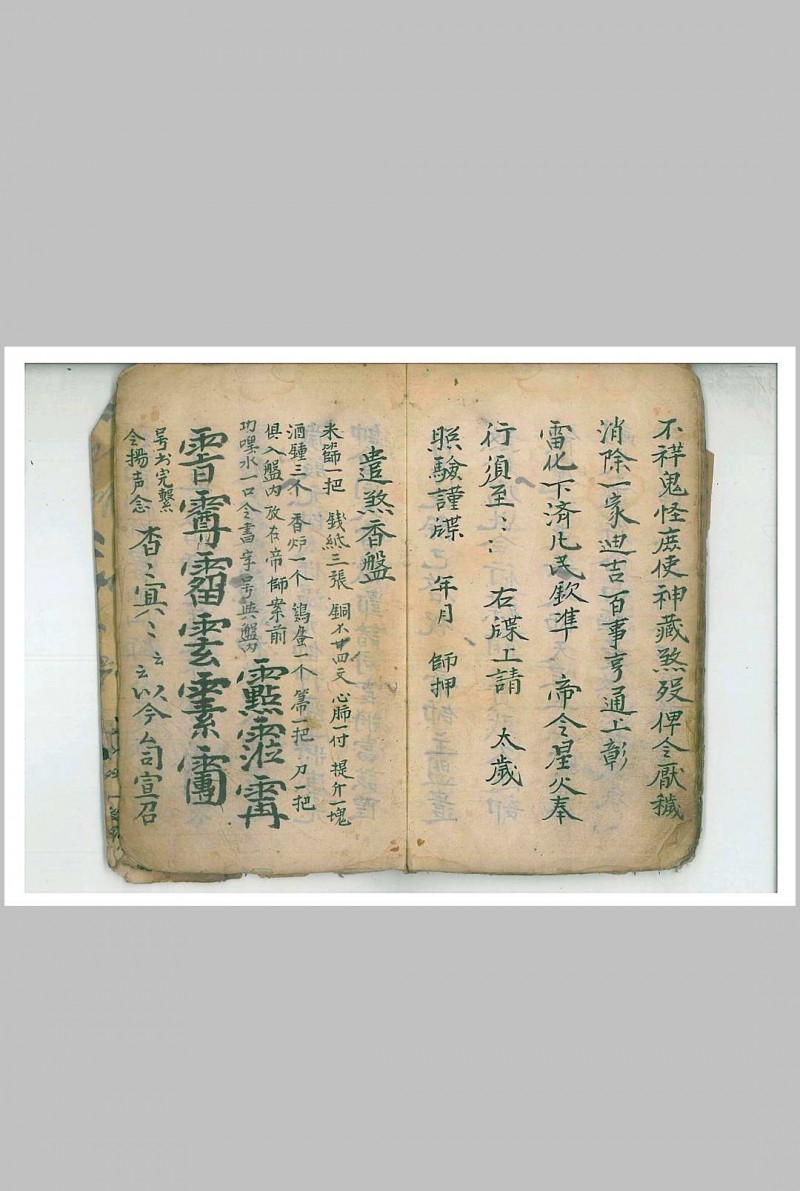 不祥鬼怪庶使神藏煞殁俾令厭穢
消除一家迪吉百事亨通上彰
雷化下濟凡民欽準 帝令星火奉
行須至:: 右牒上請 太歲
照驗謹牒 年月 師押
遣煞香盤
米篩一把 錢紙三張 銅不廿四文 心肺一付 提介一塊
酒鍾三个 香炉一个 鷄蛋一个 箒一把 刀一把
俱入盤內 放在帝師案前
功噀水一口令書字号與盤內
号书完繫
令揚声念 杳〻冥〻〻云以今厶司宣召